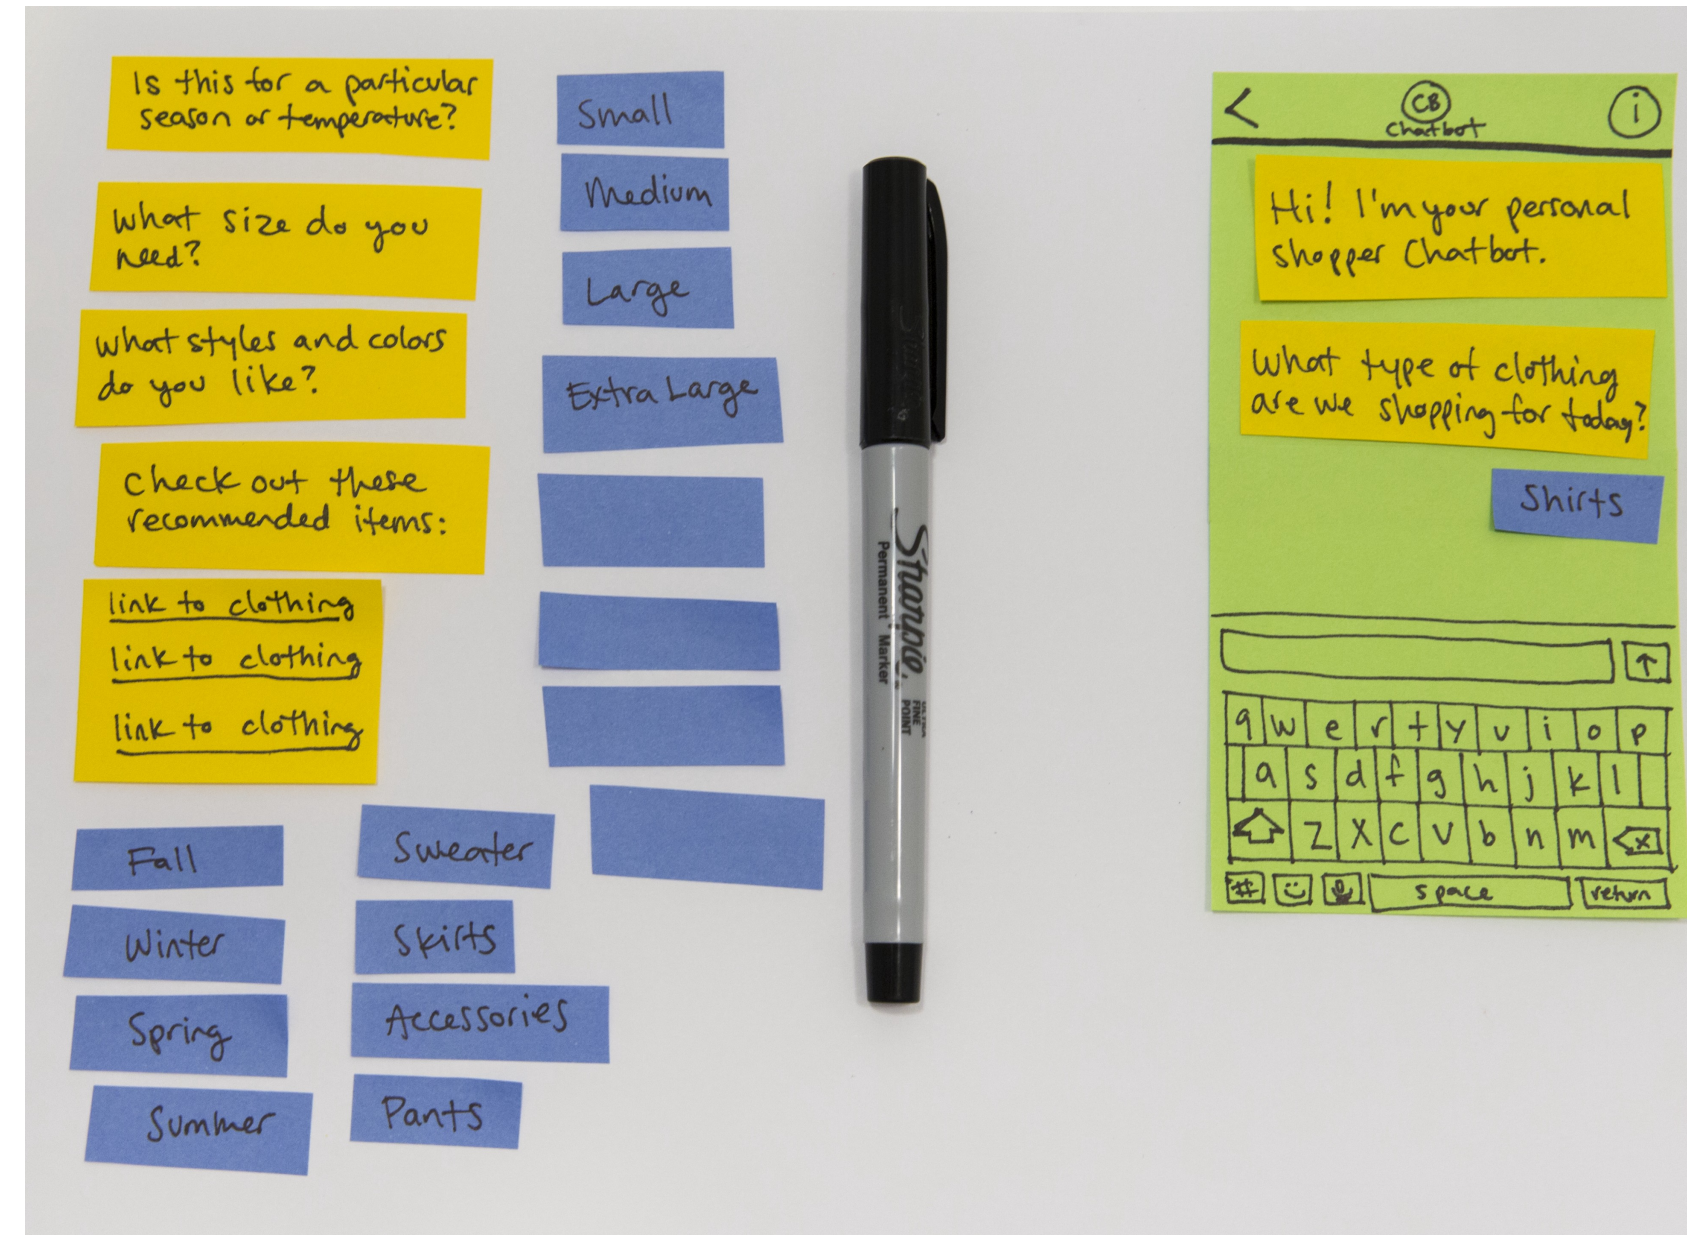 Is this for a particular
season or temperature?
What size do you
need?
what styles and colors
do you like?
check out these
recommended items:
link to clothing
link to clothing
link to clothing
Fall
Winter
Spring
Summer
Sweater
Skirts
Accessories
Pants
Small
Medium
Large
Extra Large
Sharpie
Permanent Marker
FINE
POINT
<
CB
Chatbot
i
Hi! I'm your personal
shopper Chatbot.
What type of clothing
are we shopping for today?
Shirts
↑
q w e r t y u i o p
a s d f g h j k l
z x c v b n m
# space return